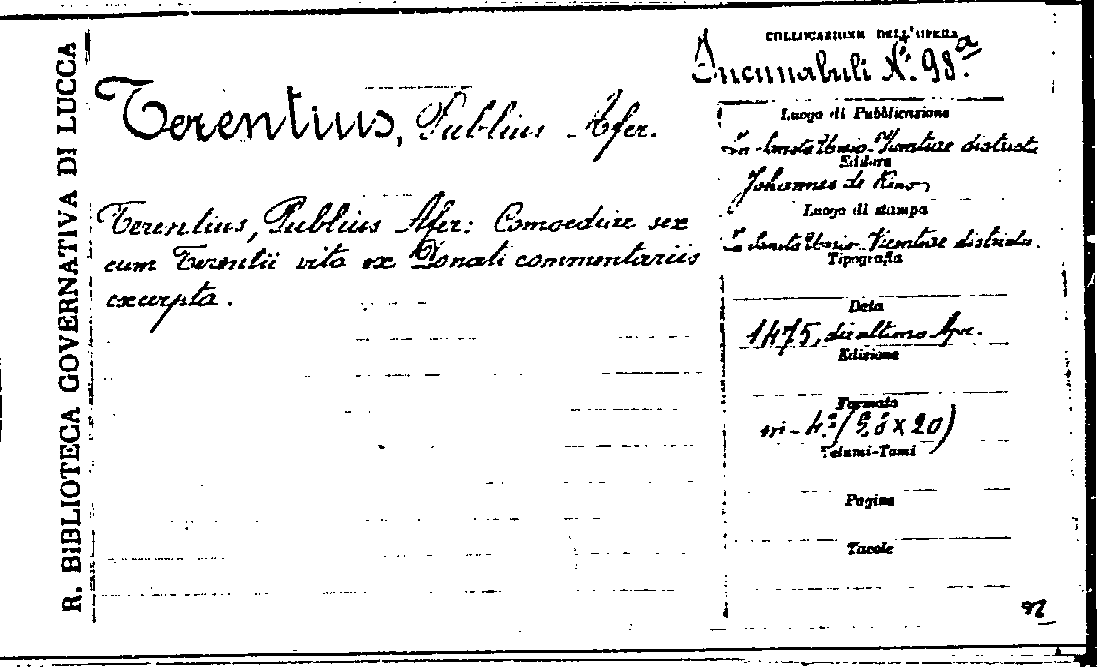 R. BIBLIOTECA GOVERNATIVA DI LUCCA
Terentius, Publius Afer.
Terentius, Publius Afer: Comoediae sex
cum Terentii vita ex Donati commentariis
excerpta.
COLLOCAZIONE DELL'OPERA
Incunabuli N.º 98.a
Luogo di Pubblicazione
In Sancto Ursio. Vicentiae districtu
Editore
Johannes de Reno
Luogo di stampa
In Sancto Ursio. Vicentiae districtu.
Tipografia
Data
1475, die ultimo Apr.
Edizione
Formato
in-4.º (28 x 20)
Volumi-Tomi
Pagine
Tavole